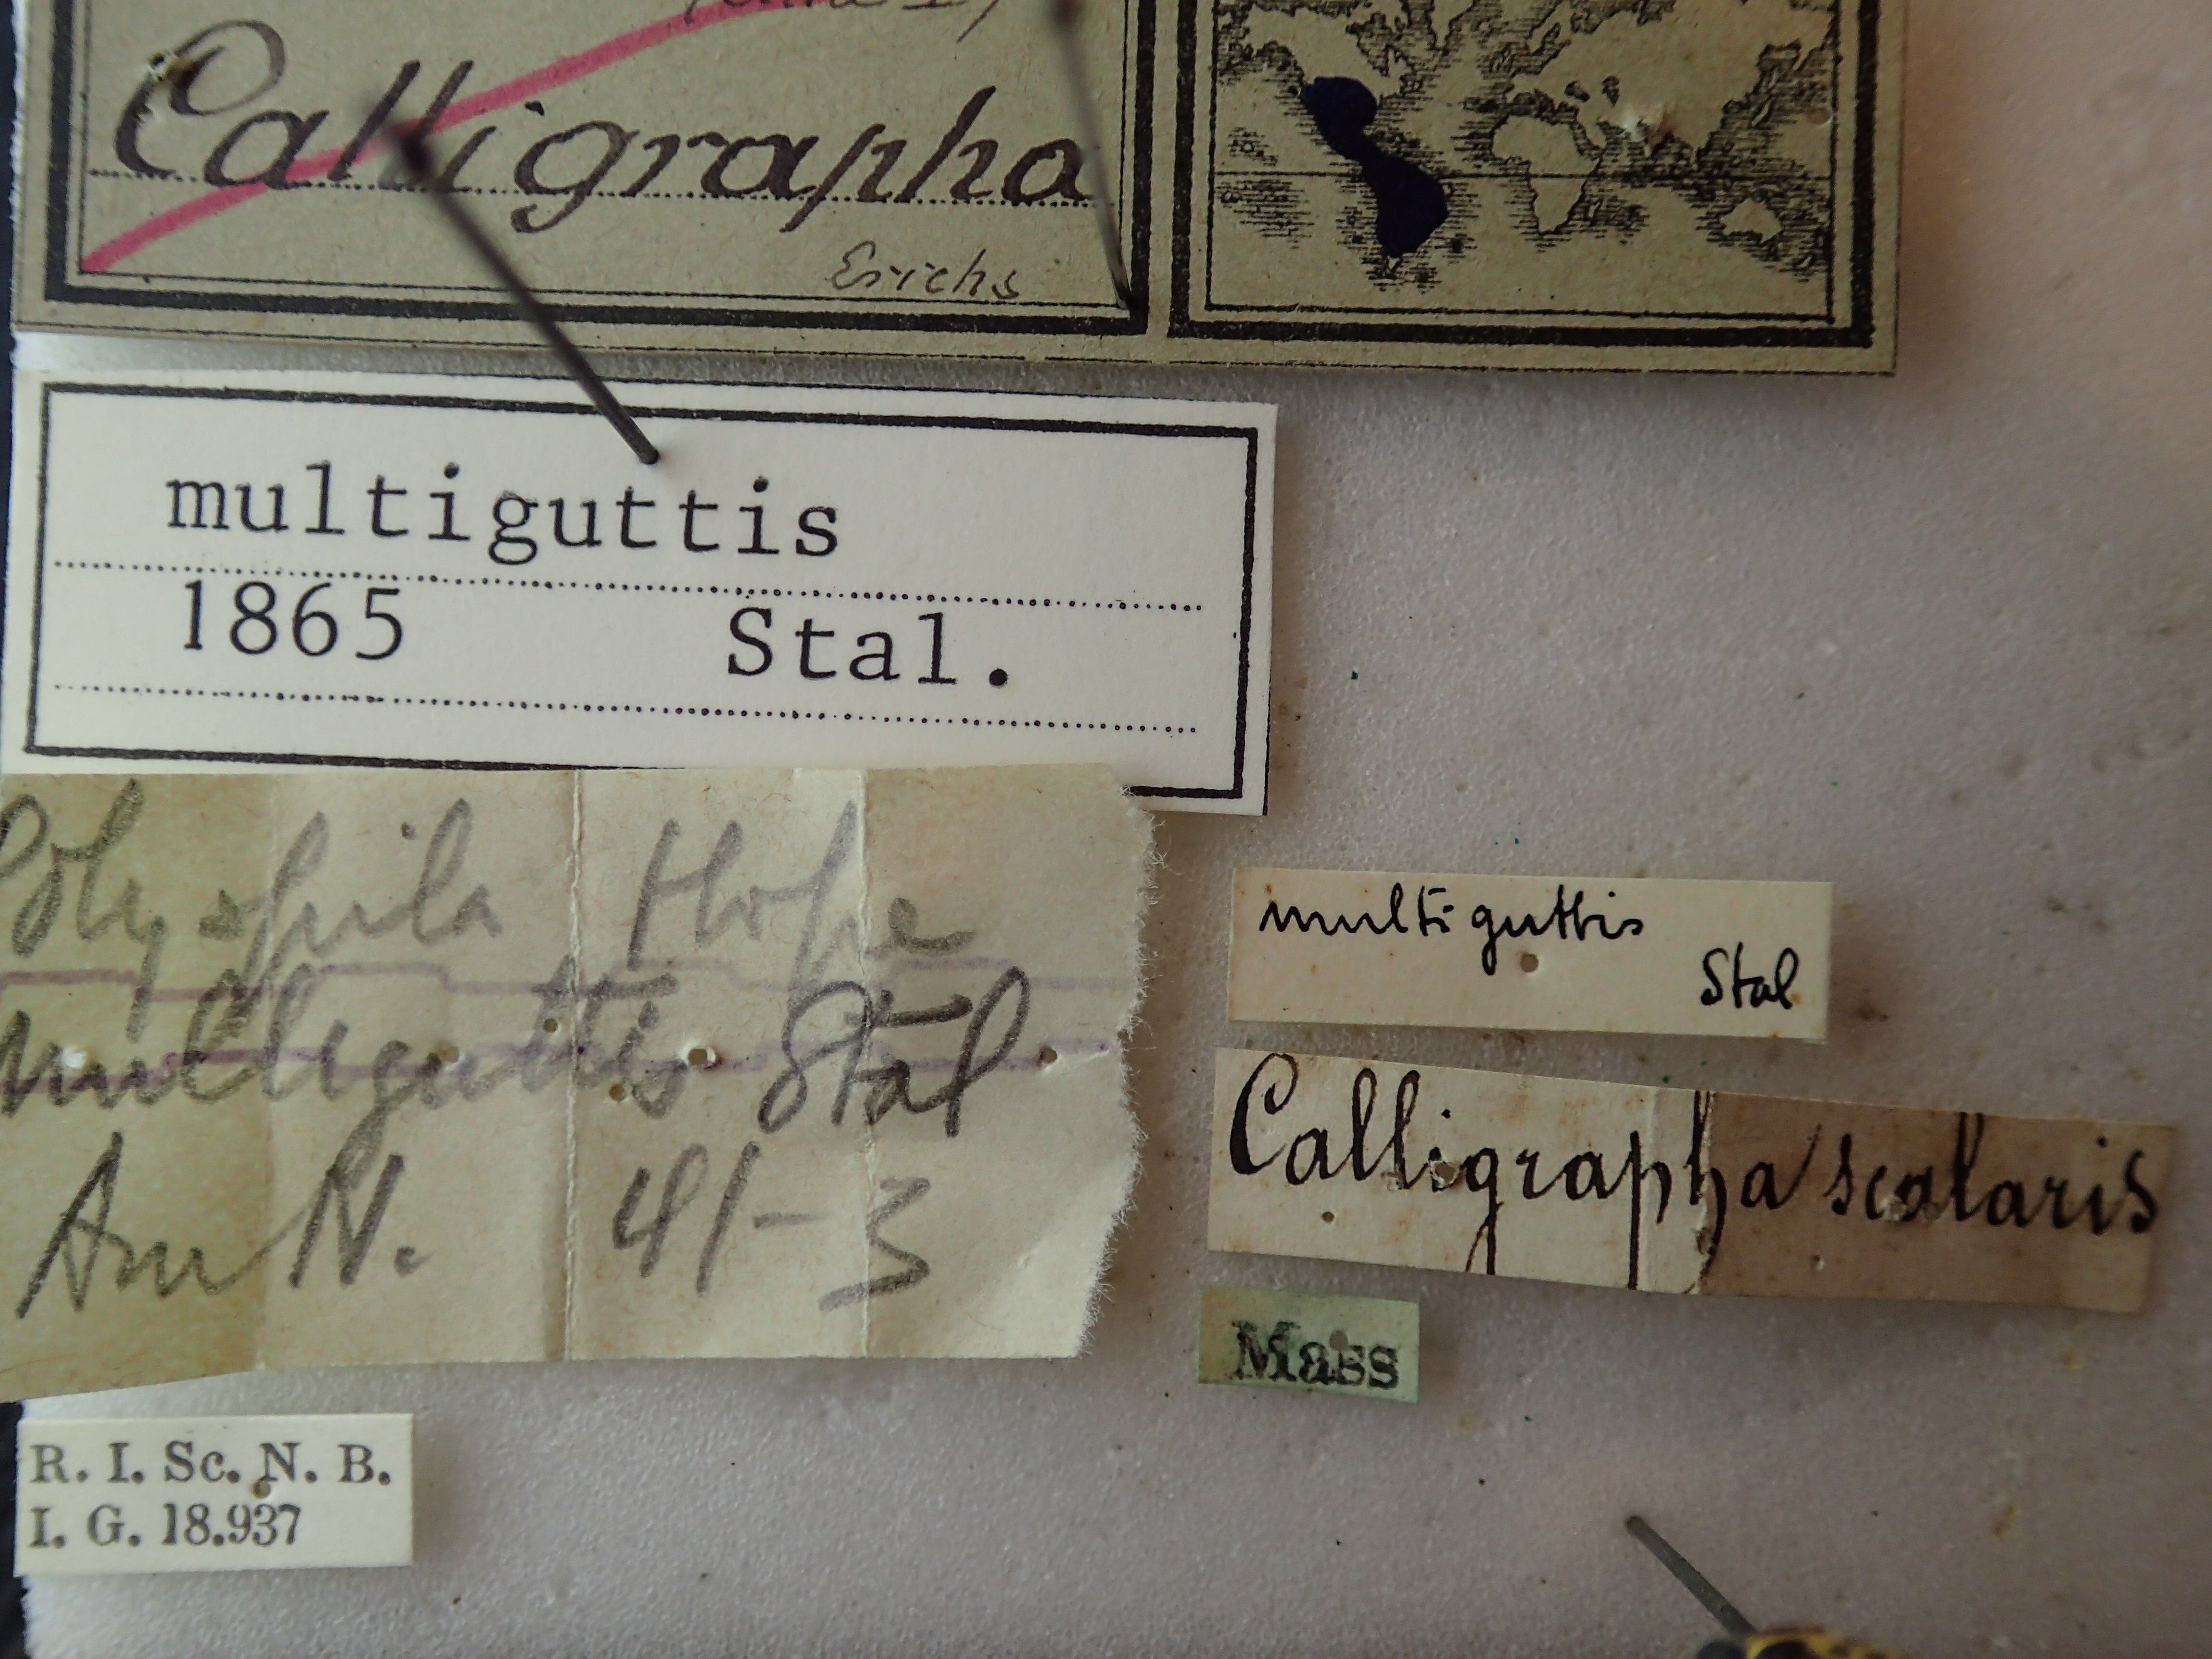 Calligrapha
Erichs
multiguttis
1865 Stal.
Polyspila Hope
multiguttis Stål
Am N. 41-3
multiguttis
Stal
Calligrapha scalaris
Mass
R. I. Sc. N. B.
I. G. 18.937